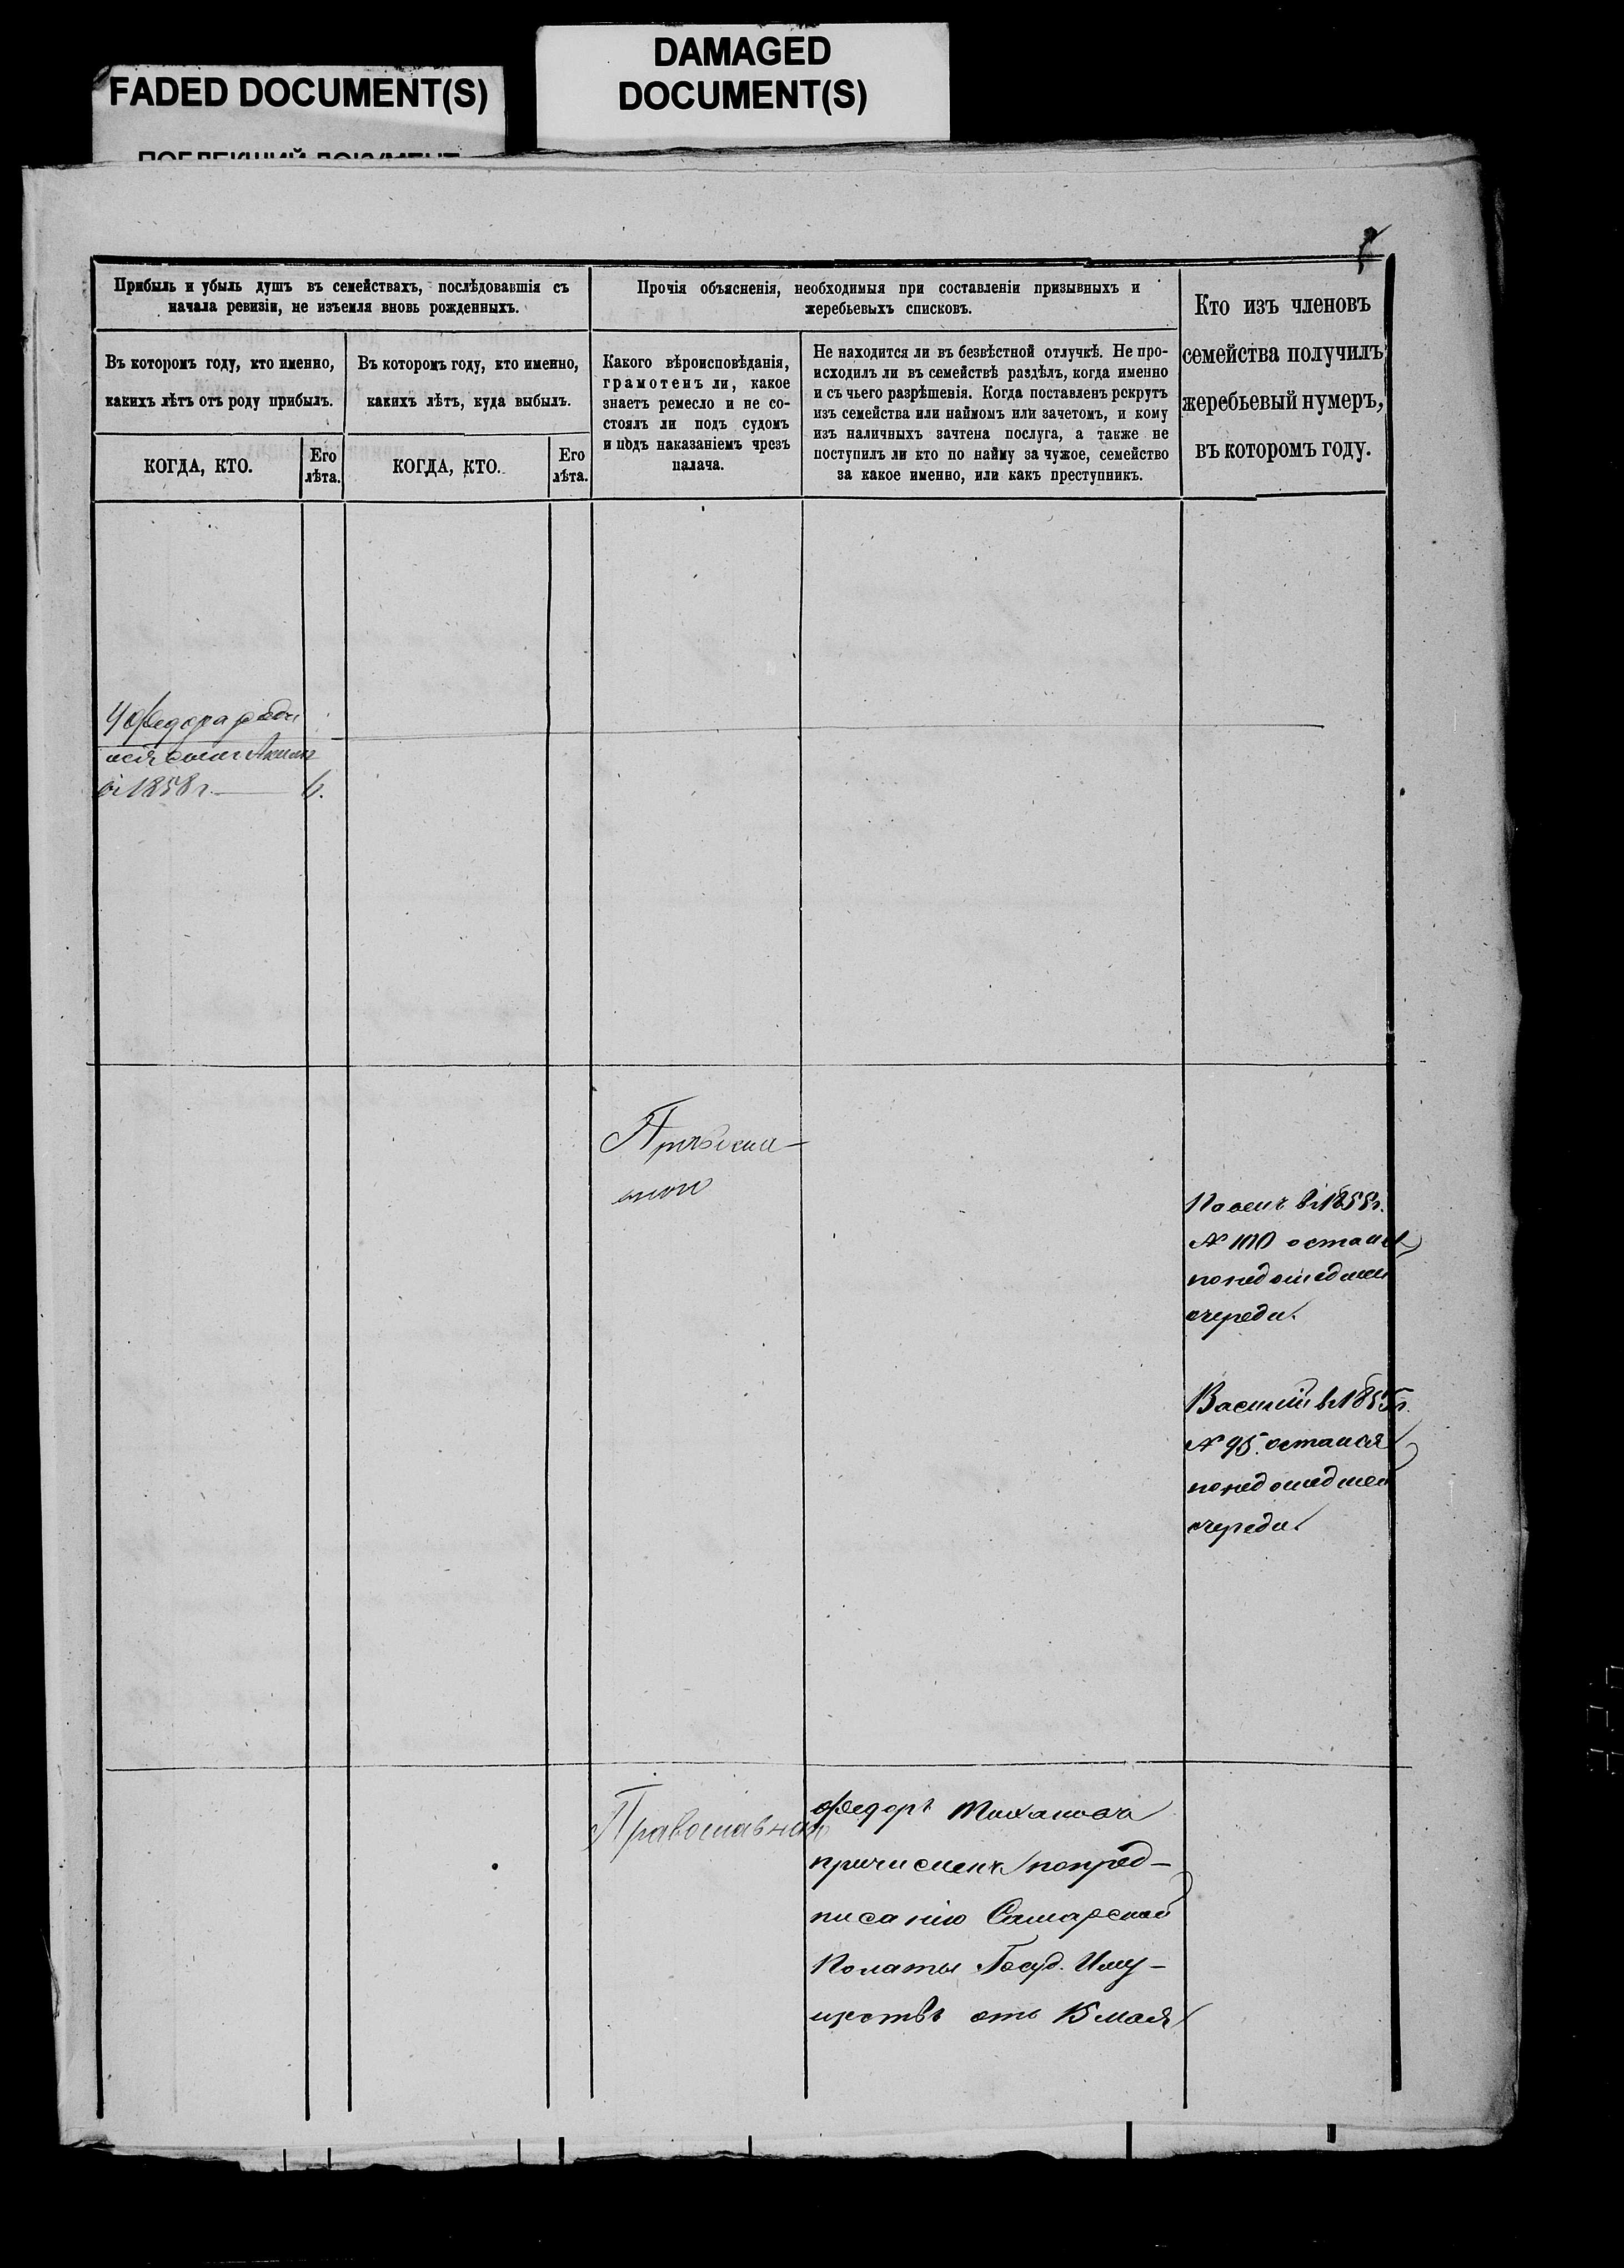 FADED DOCUMENT(S)
ПОБЛЕКШИЙ ДОКУМЕНТ
DAMAGED
DOCUMENT(S)
Прибыль и убыль душъ въ семействахъ, послѣдовавшія съ
начала ревизіи, не изъемля вновь рожденныхъ.
Въ которомъ году, кто именно,
какихъ лѣтъ отъ роду прибылъ.
КОГДА, КТО.
Его
лѣта.
Въ которомъ году, кто именно,
какихъ лѣтъ, куда выбылъ.
КОГДА, КТО.
Его
лѣта.
Прочія объясненія, необходимыя при составленіи призывныхъ и
жеребьевыхъ списковъ.
Какого вѣроисповѣданія,
грамотенъ ли, какое
знаетъ ремесло и не со-
стоялъ ли подъ судомъ
и подъ наказаніемъ чрезъ
палача.
Не находится ли въ безвѣстной отлучкѣ. Не про-
исходилъ ли въ семействѣ раздѣлъ, когда именно
и съ чьего разрѣшенія. Когда поставленъ рекрутъ
изъ семейства или наймомъ или зачетомъ, и кому
изъ наличныхъ зачтена послуга, а также не
поступилъ ли кто по найму за чужое, семейство
за какое именно, или какъ преступникъ.
Кто изъ членовъ
семейства получилъ
жеребьевый нумеръ,
въ которомъ году.
У Федора роди
лся сынъ
въ 1858 г.
№ 100 остался
по недошедшей
очереди.
Василій въ 1855 г.
№ 95. остался
по недошедшей
очереди.
Православнаго
Федоръ
причисленъ по пред-
писанію Самарской
Полаты Госуд. Иму-
ществъ отъ 15 мая